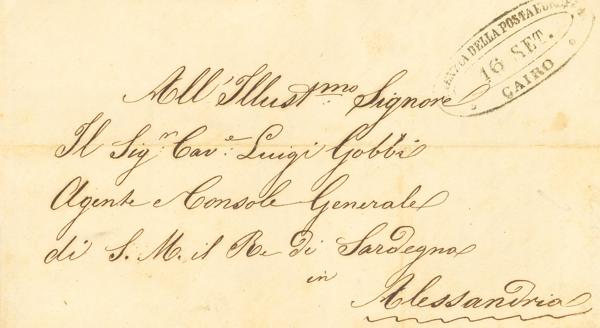 AGENZIA DELLA POSTA EUROPEA
16 SET.
CAIRO
All'Illust.mo Signore
Il Sig.r Cav.e Luigi Gobbi
Agente e Console Generale
di S. M. il Re di Sardegna
in
Alessandria